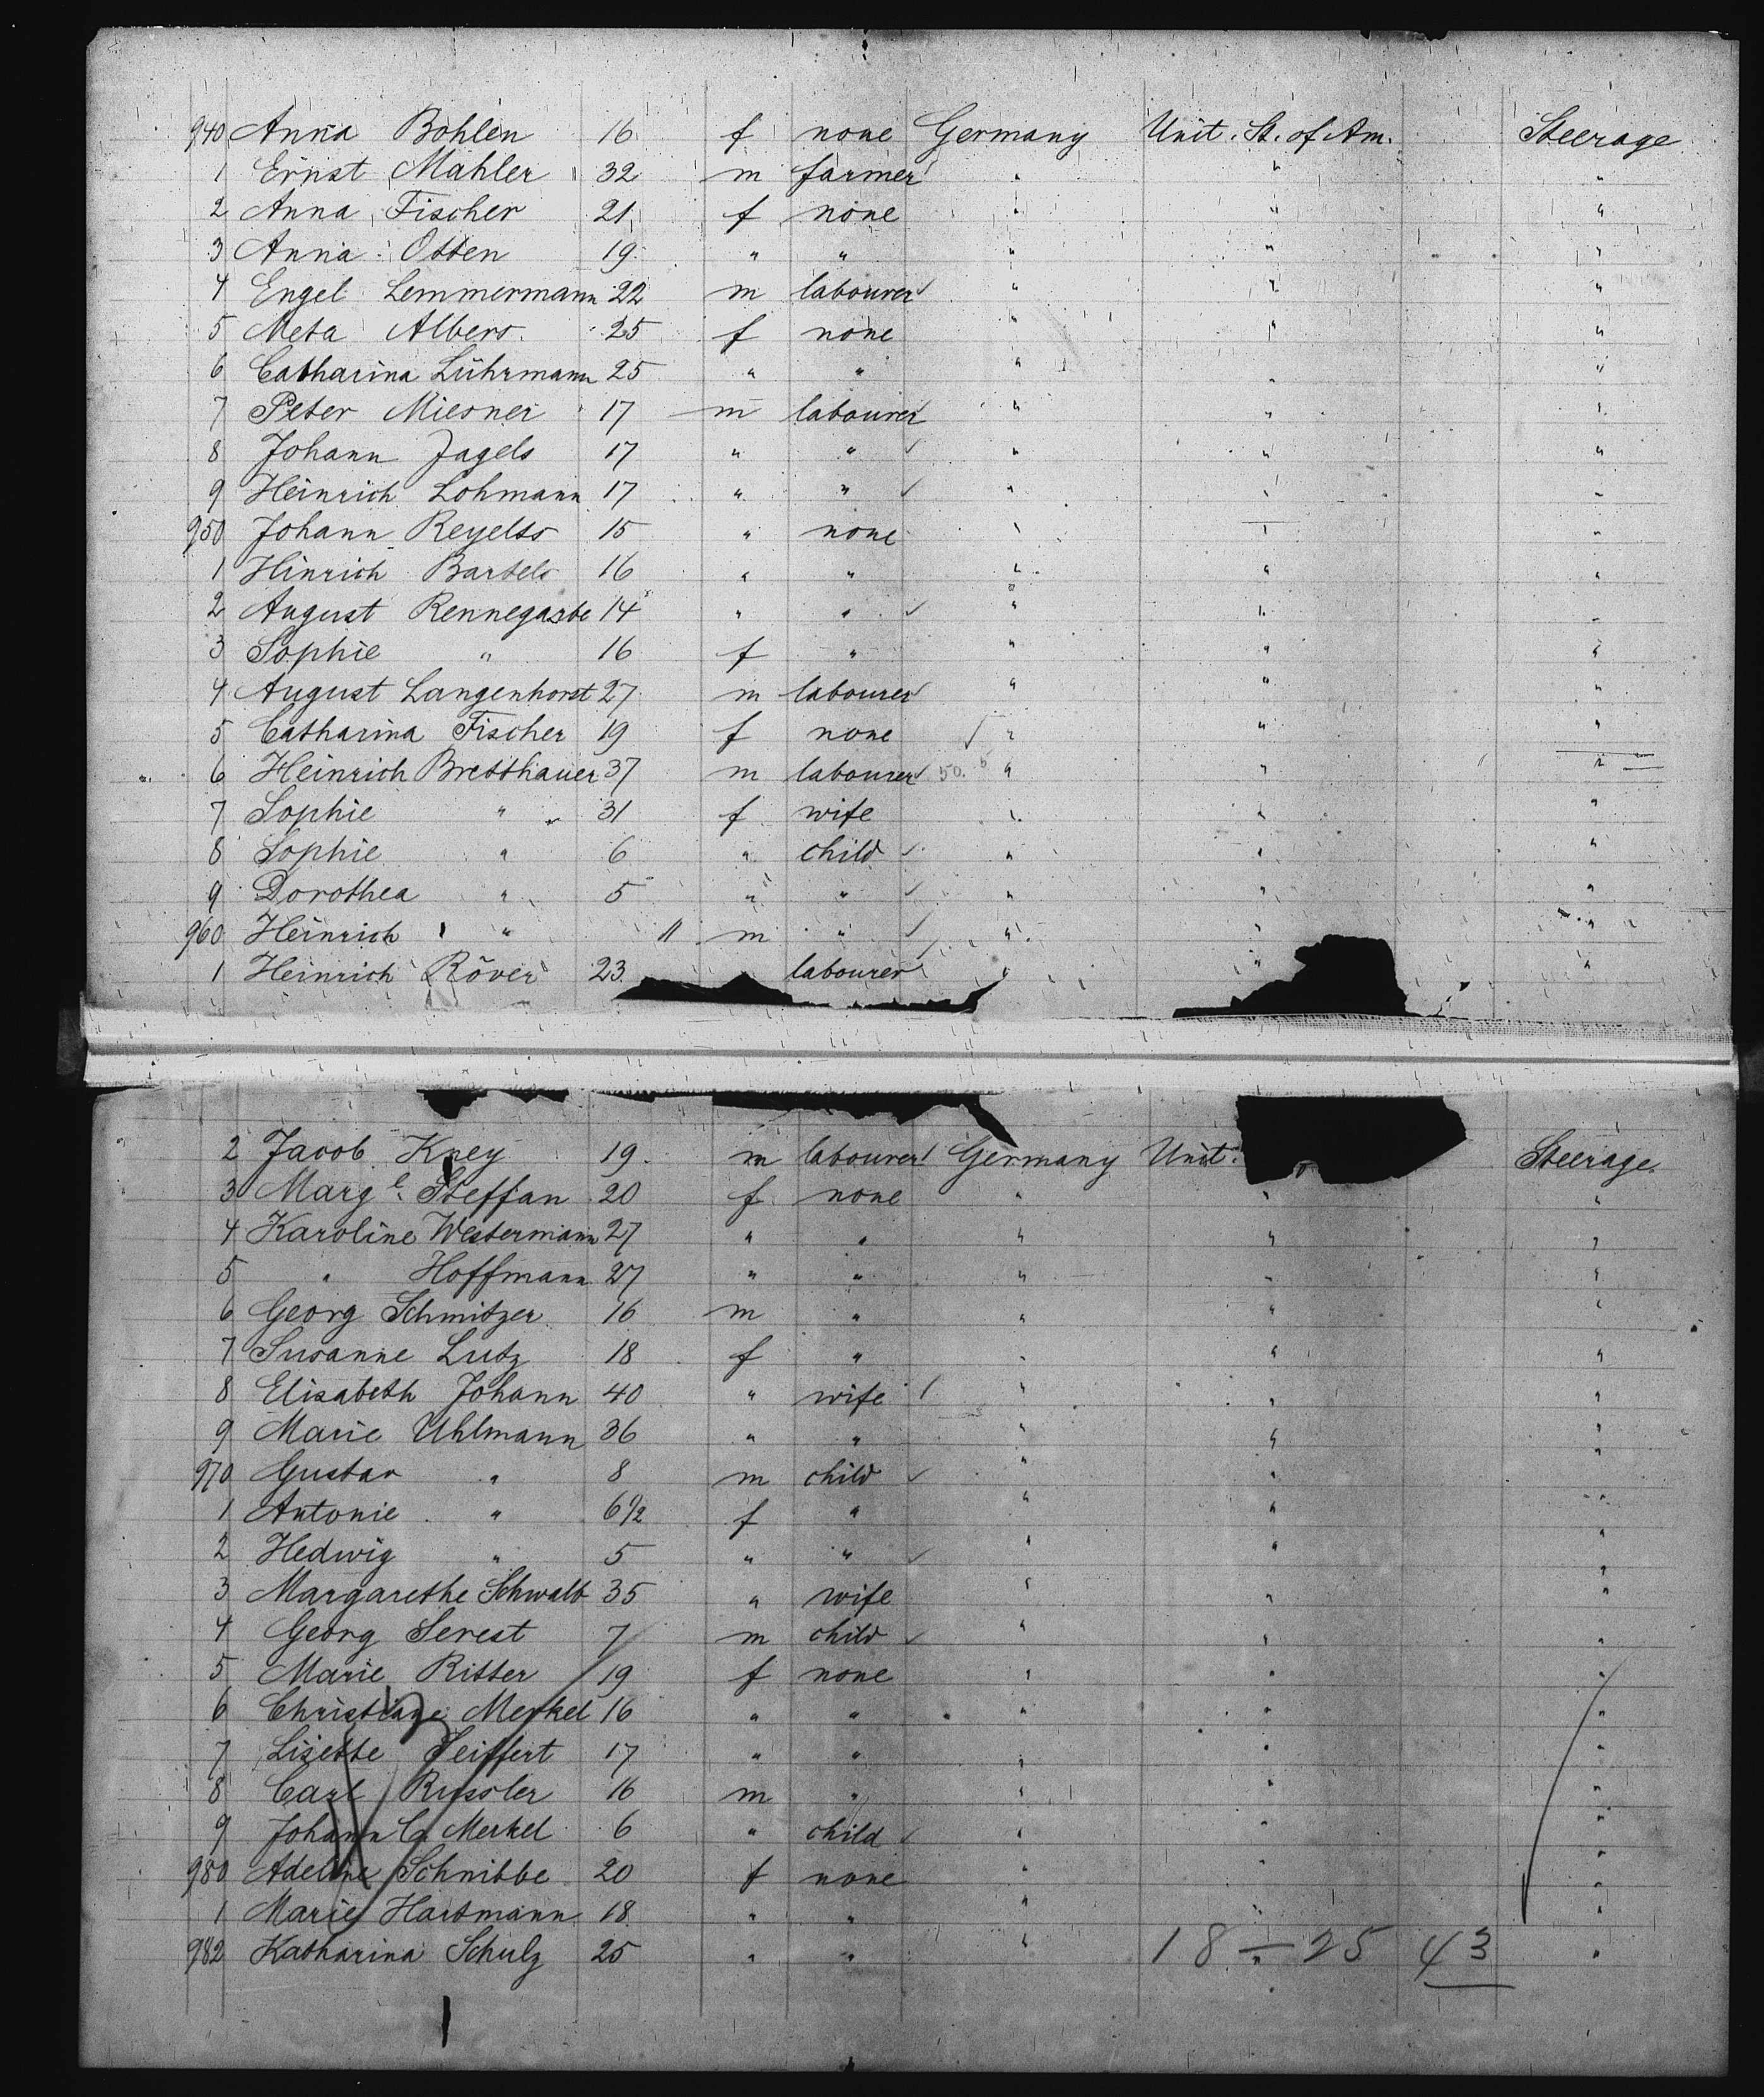 940 Anna Bohlen 16 f none Germany Unit. St. of Am. Steerage
1 Ernst Mahler 32 m farmer " " "
2 Anna Fischer 21 f none " " "
3 Anna Otten 19 " " " " "
4 Engel Lemmermann 22 m labourer " " "
5 Meta Albers 25 f none " " "
6 Catharina Lührmann 25 " " " " "
7 Peter Miesner 17 m labourer " " "
8 Johann Jagels 17 " " " " "
9 Heinrich Lohmann 17 " " " " "
950 Johann Reyelts 15 " none " " "
1 Hinrich Bartels 16 " " " " "
2 August Rennegarbe 14 " " " " "
3 Sophie " 16 f " " " "
4 August Langenhorst 27 m labourer " " "
5 Catharina Fischer 19 f none " " "
6 Heinrich Bretthauer 37 m labourer " " "
7 Sophie " 31 f wife " " "
8 Sophie " 6 " child " " "
9 Dorothea " 5 " " " " "
960 Heinrich " 11 m " " " "
1 Heinrich Röver 23 labourer " " "
2 Jacob Krey 19 m labourer Germany Unit. Steerage
3 Marg e. Steffan 20 f none " " "
4 Karoline Westermann 27 " " " " "
5 " Hoffmann 27 " " " " "
6 Georg Schmitzer 16 m " " " "
7 Susanne Lutz 18 f " " " "
8 Elisabeth Johann 40 " wife " " "
9 Marie Uhlmann 36 " " " " "
970 Gustav " 8 m child " " "
1 Antonie " 6 1/2 f " " " "
2 Hedwig " 5 " " " " "
3 Margarethe Schwalb 35 " wife " " "
4 Georg Serest 7 m child " " "
5 Marie Ritter 19 f none " " "
6 Christiane Merkel 16 " " " " "
7 Lisette Seiffert 17 " " " " "
8 Carl Russler 16 m " " " "
9 Johann Merkel 6 " child " " "
980 Adeline Schnibbe 20 f none " " "
1 Marie Hartmann 18 " " " " "
982 Katharina Schulz 25 " " " " "
18 – 25 43